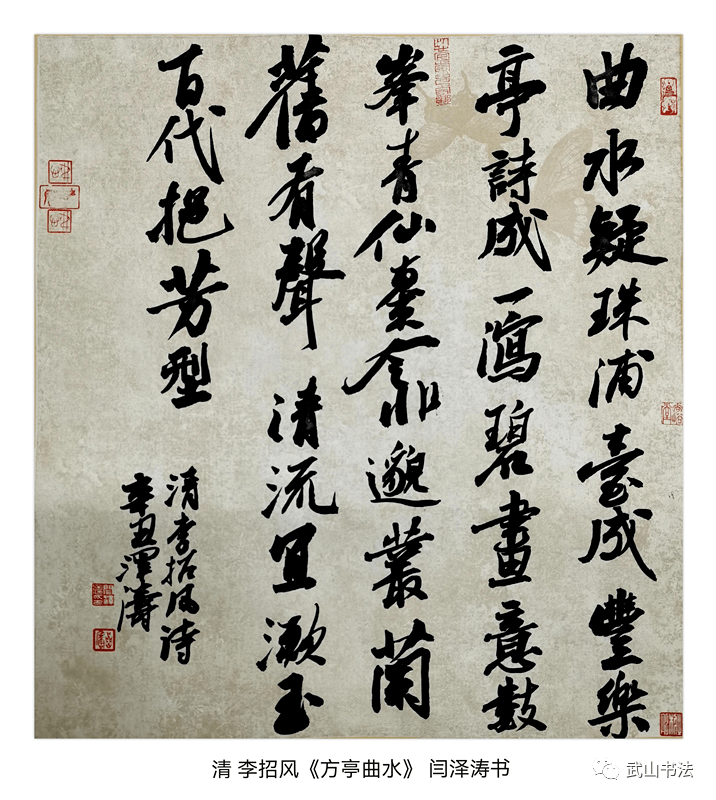 曲水疑珠浦臺成豐樂
亭詩成一瀉碧畫意鼓
峯青仙今非邈叢蘭
舊有聲清流宜漱玉
百代挹芳型
清李招风诗
辛丑澤濤
清 李招风《方亭曲水》 闫泽涛书
武山书法